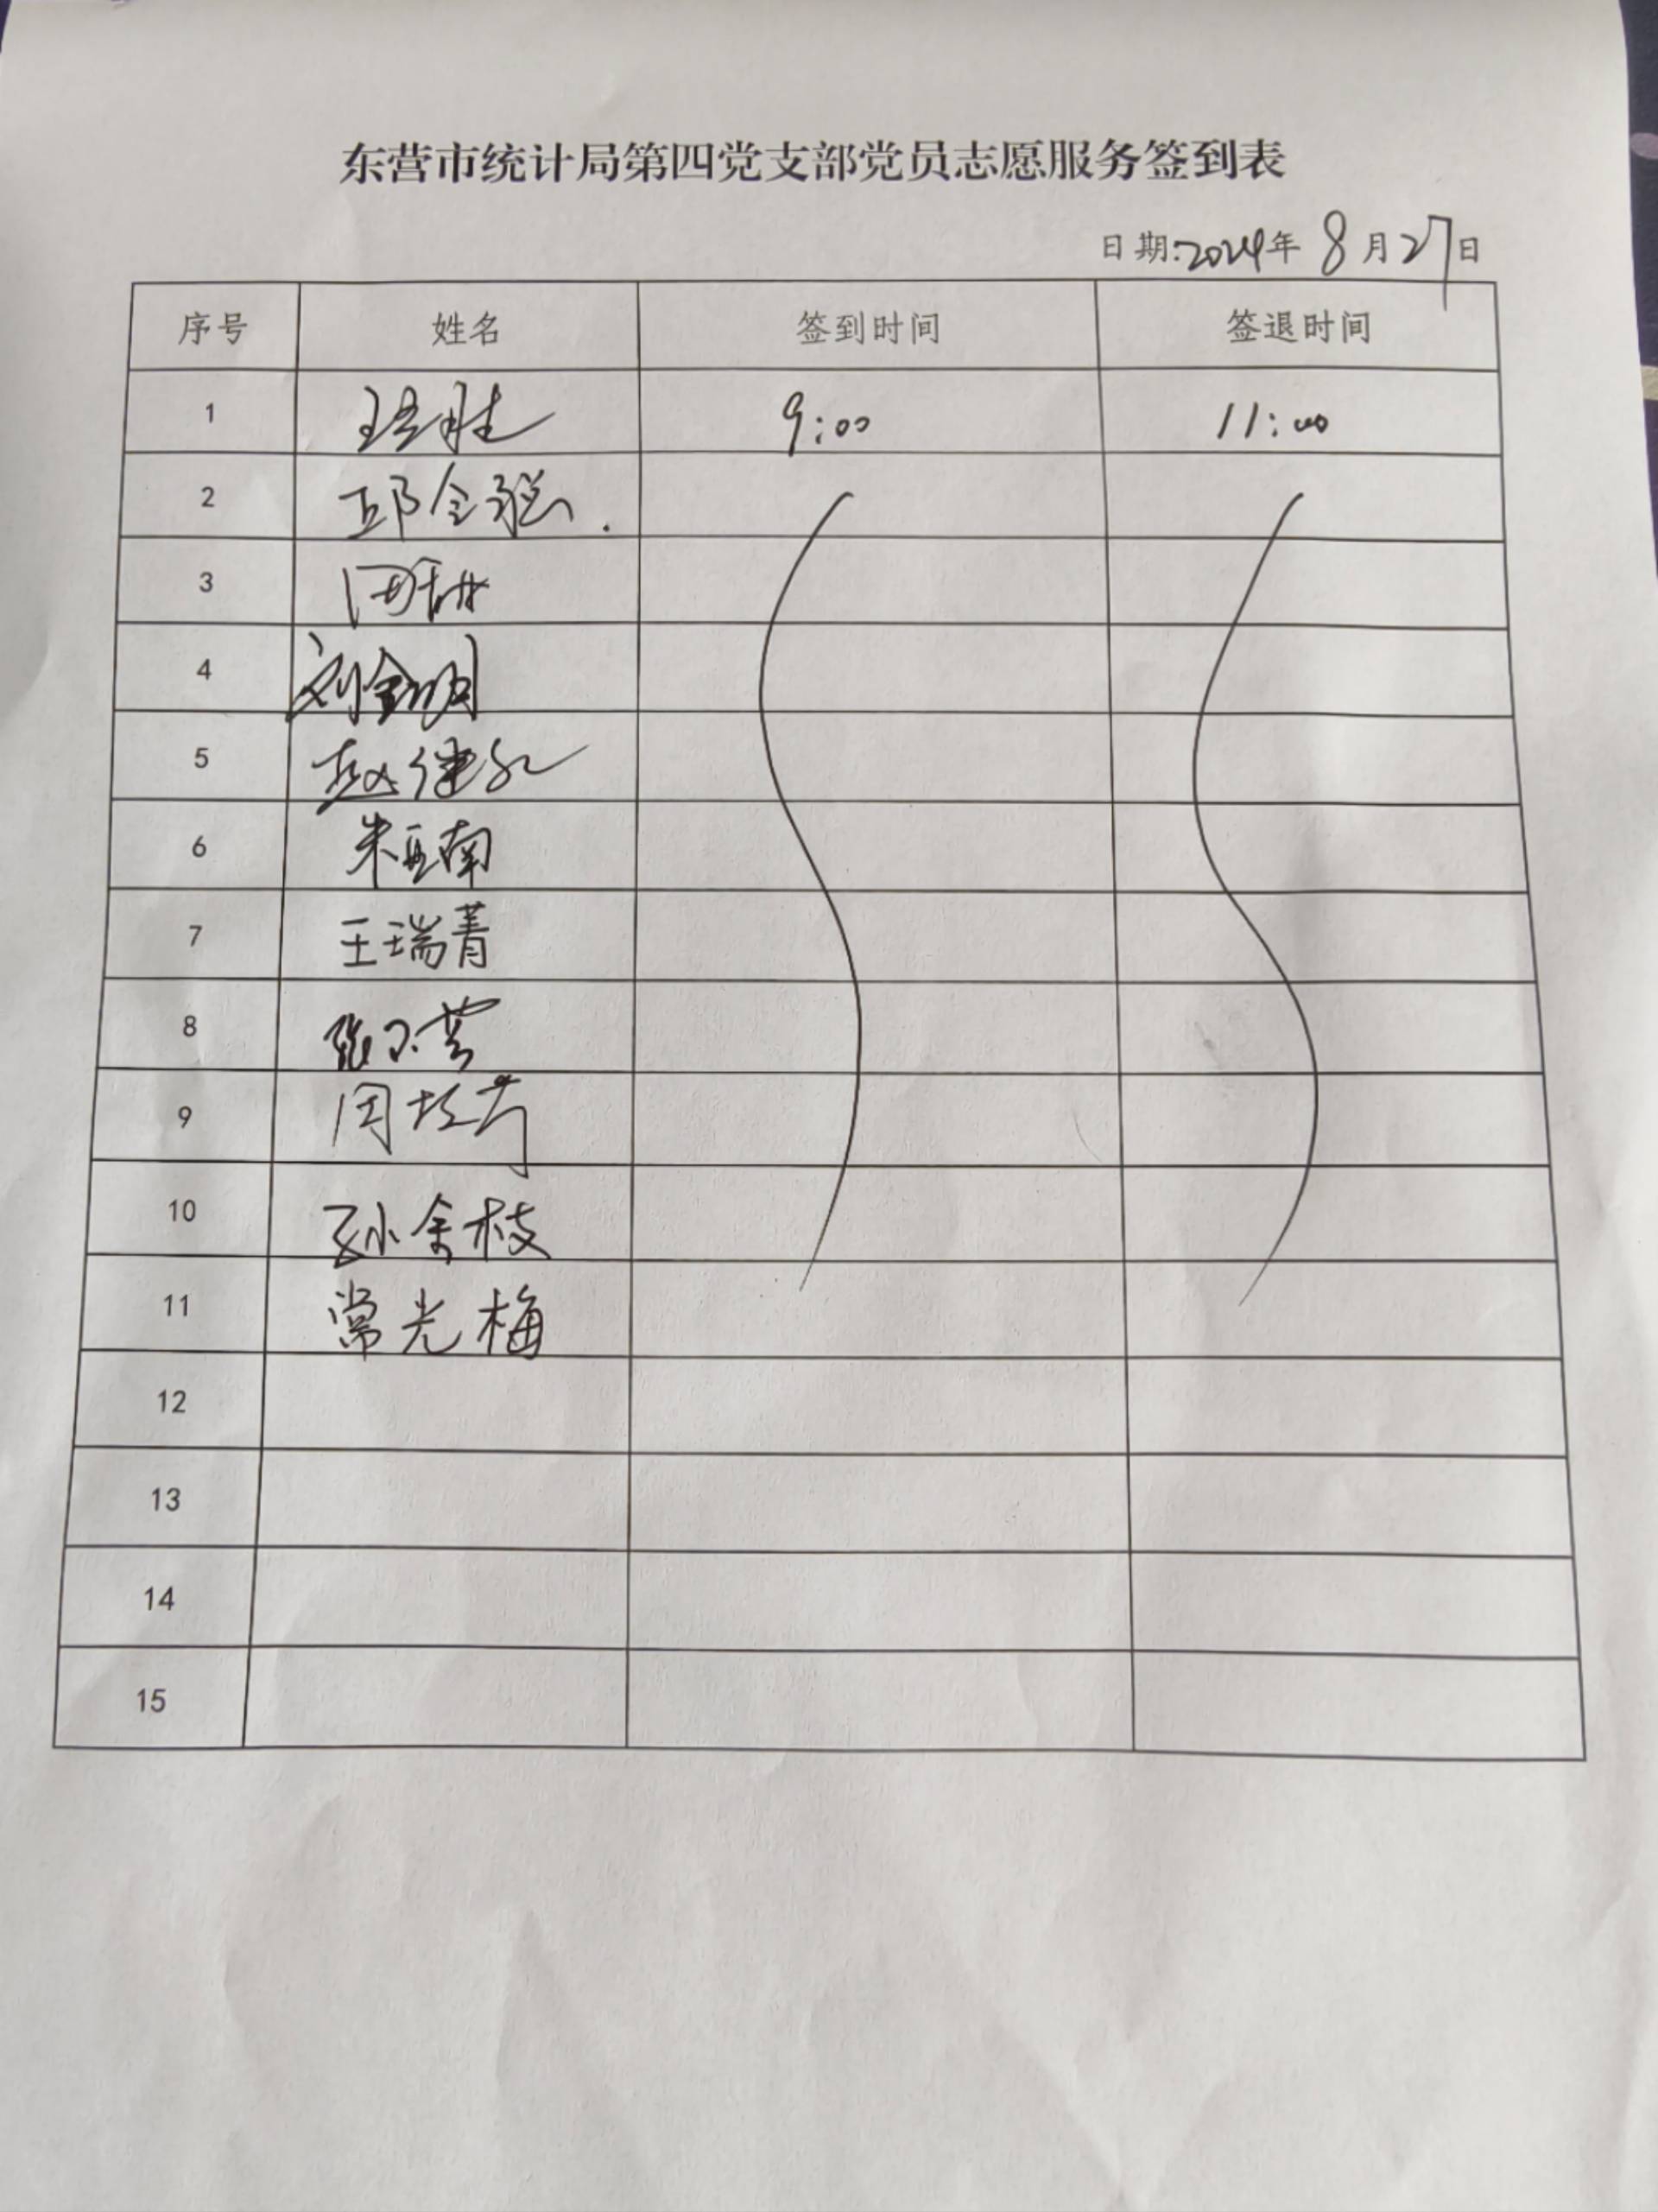 东营市统计局第四党支部党员志愿服务签到表
日期:2024年 8月27日
序号 姓名 签到时间 签退时间
1 9:00 11:00
2 邱全
3
4 刘金明
5 赵继红
6 朱亚南
7 王瑞菁
8 张
9 周
10 孙金枝
11 常光梅
12
13
14
15